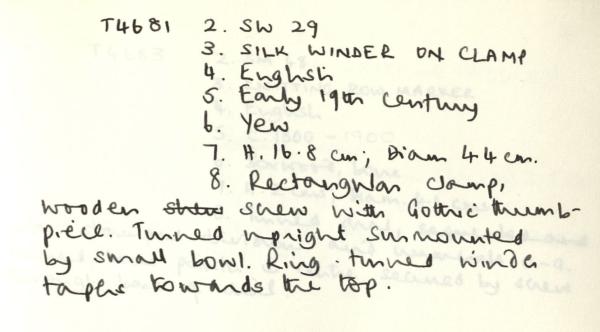 T4681 2. SW 29
3. SILK WINDER ON CLAMP
4. English
5. Early 19th century
6. Yew
7. H. 16.8 cm; Diam 4.4 cm.
8. Rectangular clamp,
wooden screw with Gothic thumb-
piece. Turned upright surmounted
by small bowl. Ring-turned winder
tapers towards the top.